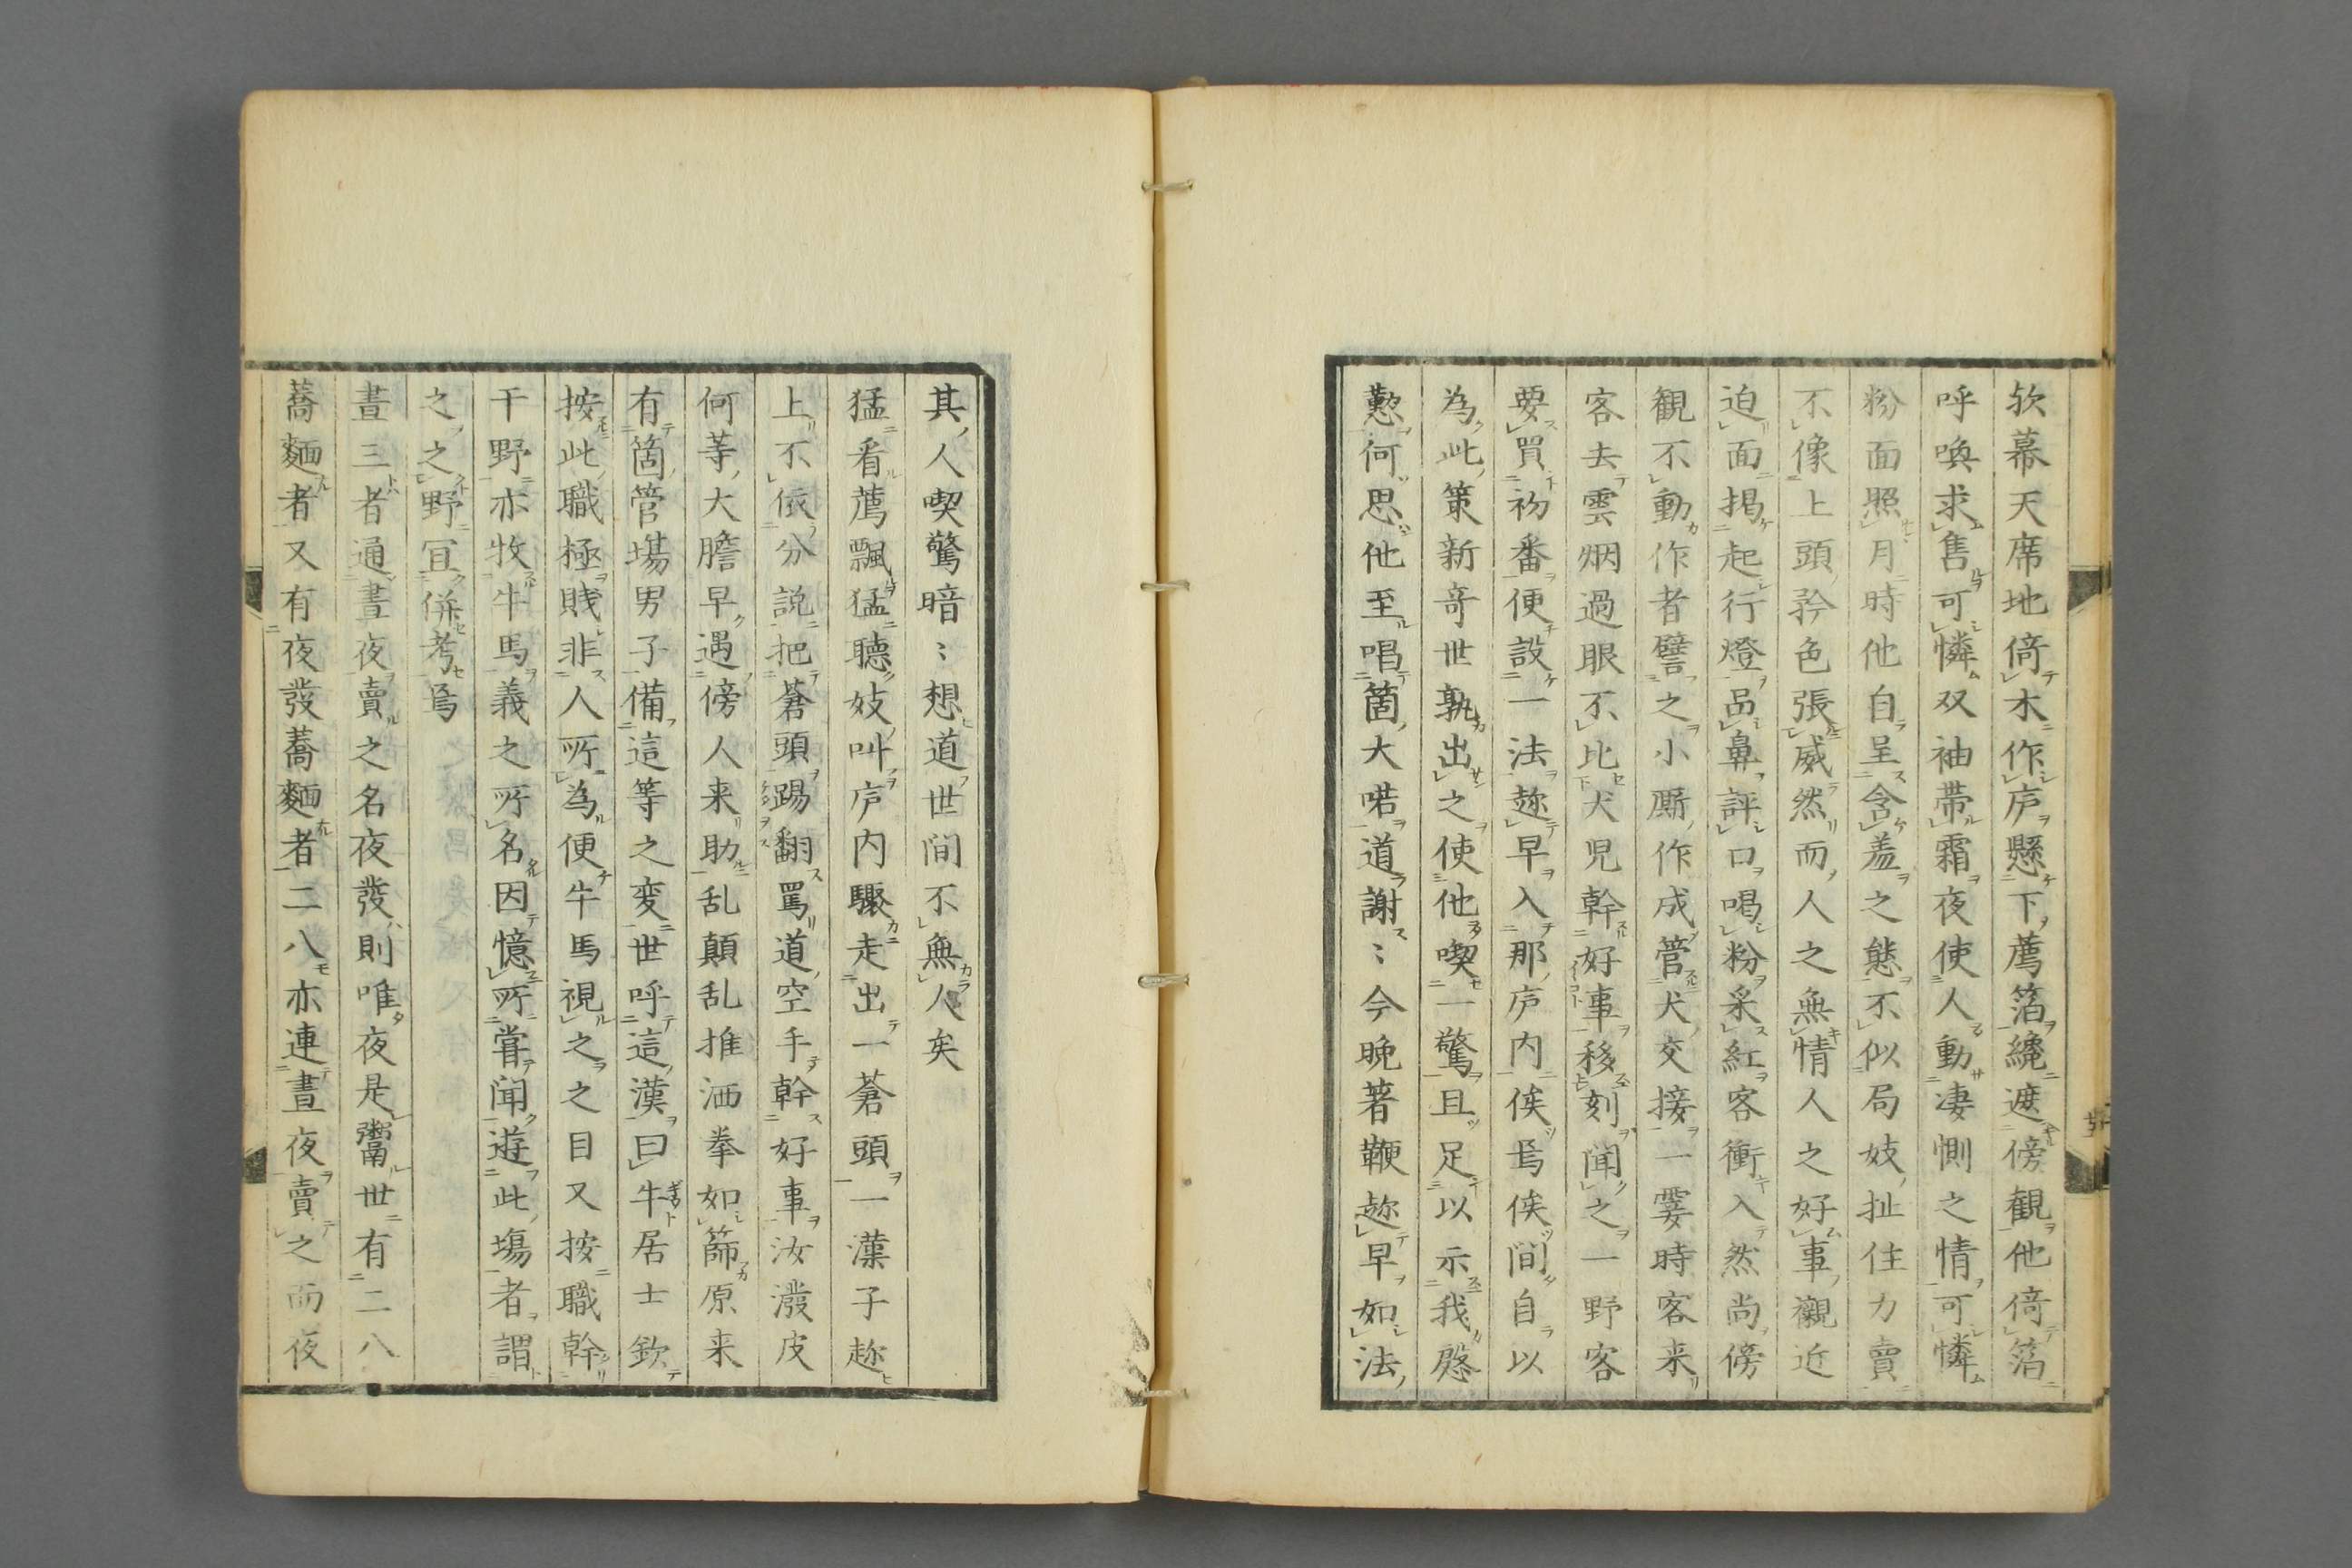 欤幕天席地倚木作庐懸下薦箔纔遮傍観他倚箔
呼喚求售可憐双袖帯霜夜使人動凄惻之情可憐
粉面照月時他自呈含羞之態不似局妓扯住力賣
不像上頭矜色張威然而人之無情人之好事襯近
迫面掲起行燈品鼻評口喝粉采紅客衝入然尚傍
観不動作者譬之小厮作成管犬交接一霎時客来
客去雲烟過眼不比犬児幹好事移刻聞之一野客
要買初番便設一法趂早入那庐内俟焉俟間自以
為此策新奇世孰出之使他喫一驚且足以示我慇
懃何思他至唱箇大喏道謝〻今晩著鞭趂早如法
其人喫驚暗〻想道世间不無人矣
猛看薦飄猛聴妓叫庐内驟走出一蒼頭一漢子趂
上不依分説把蒼頭踢翻罵道空手幹好事汝潑皮
何等大膽早遇傍人来助乱顛乱推洒拳如篩原来
有箇管場男子備這等之変世呼這漢曰牛居士欽
按此職極賎非人所為便牛馬視之之目又按職幹
干野亦牧牛馬義之所名因憶所嘗聞遊此塲者謂
之之野冝併考焉
晝三者通晝夜賣之名夜發則唯夜是鬻世有二八
蕎麺者又有夜發蕎麺者二八亦連晝夜賣之而夜